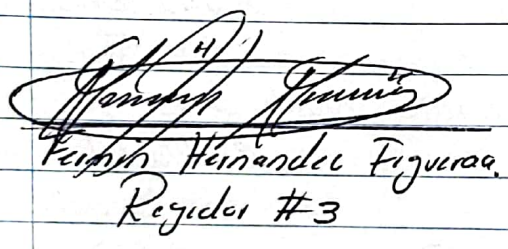 Fermin Hernandec Figueroa.
Regidor #3